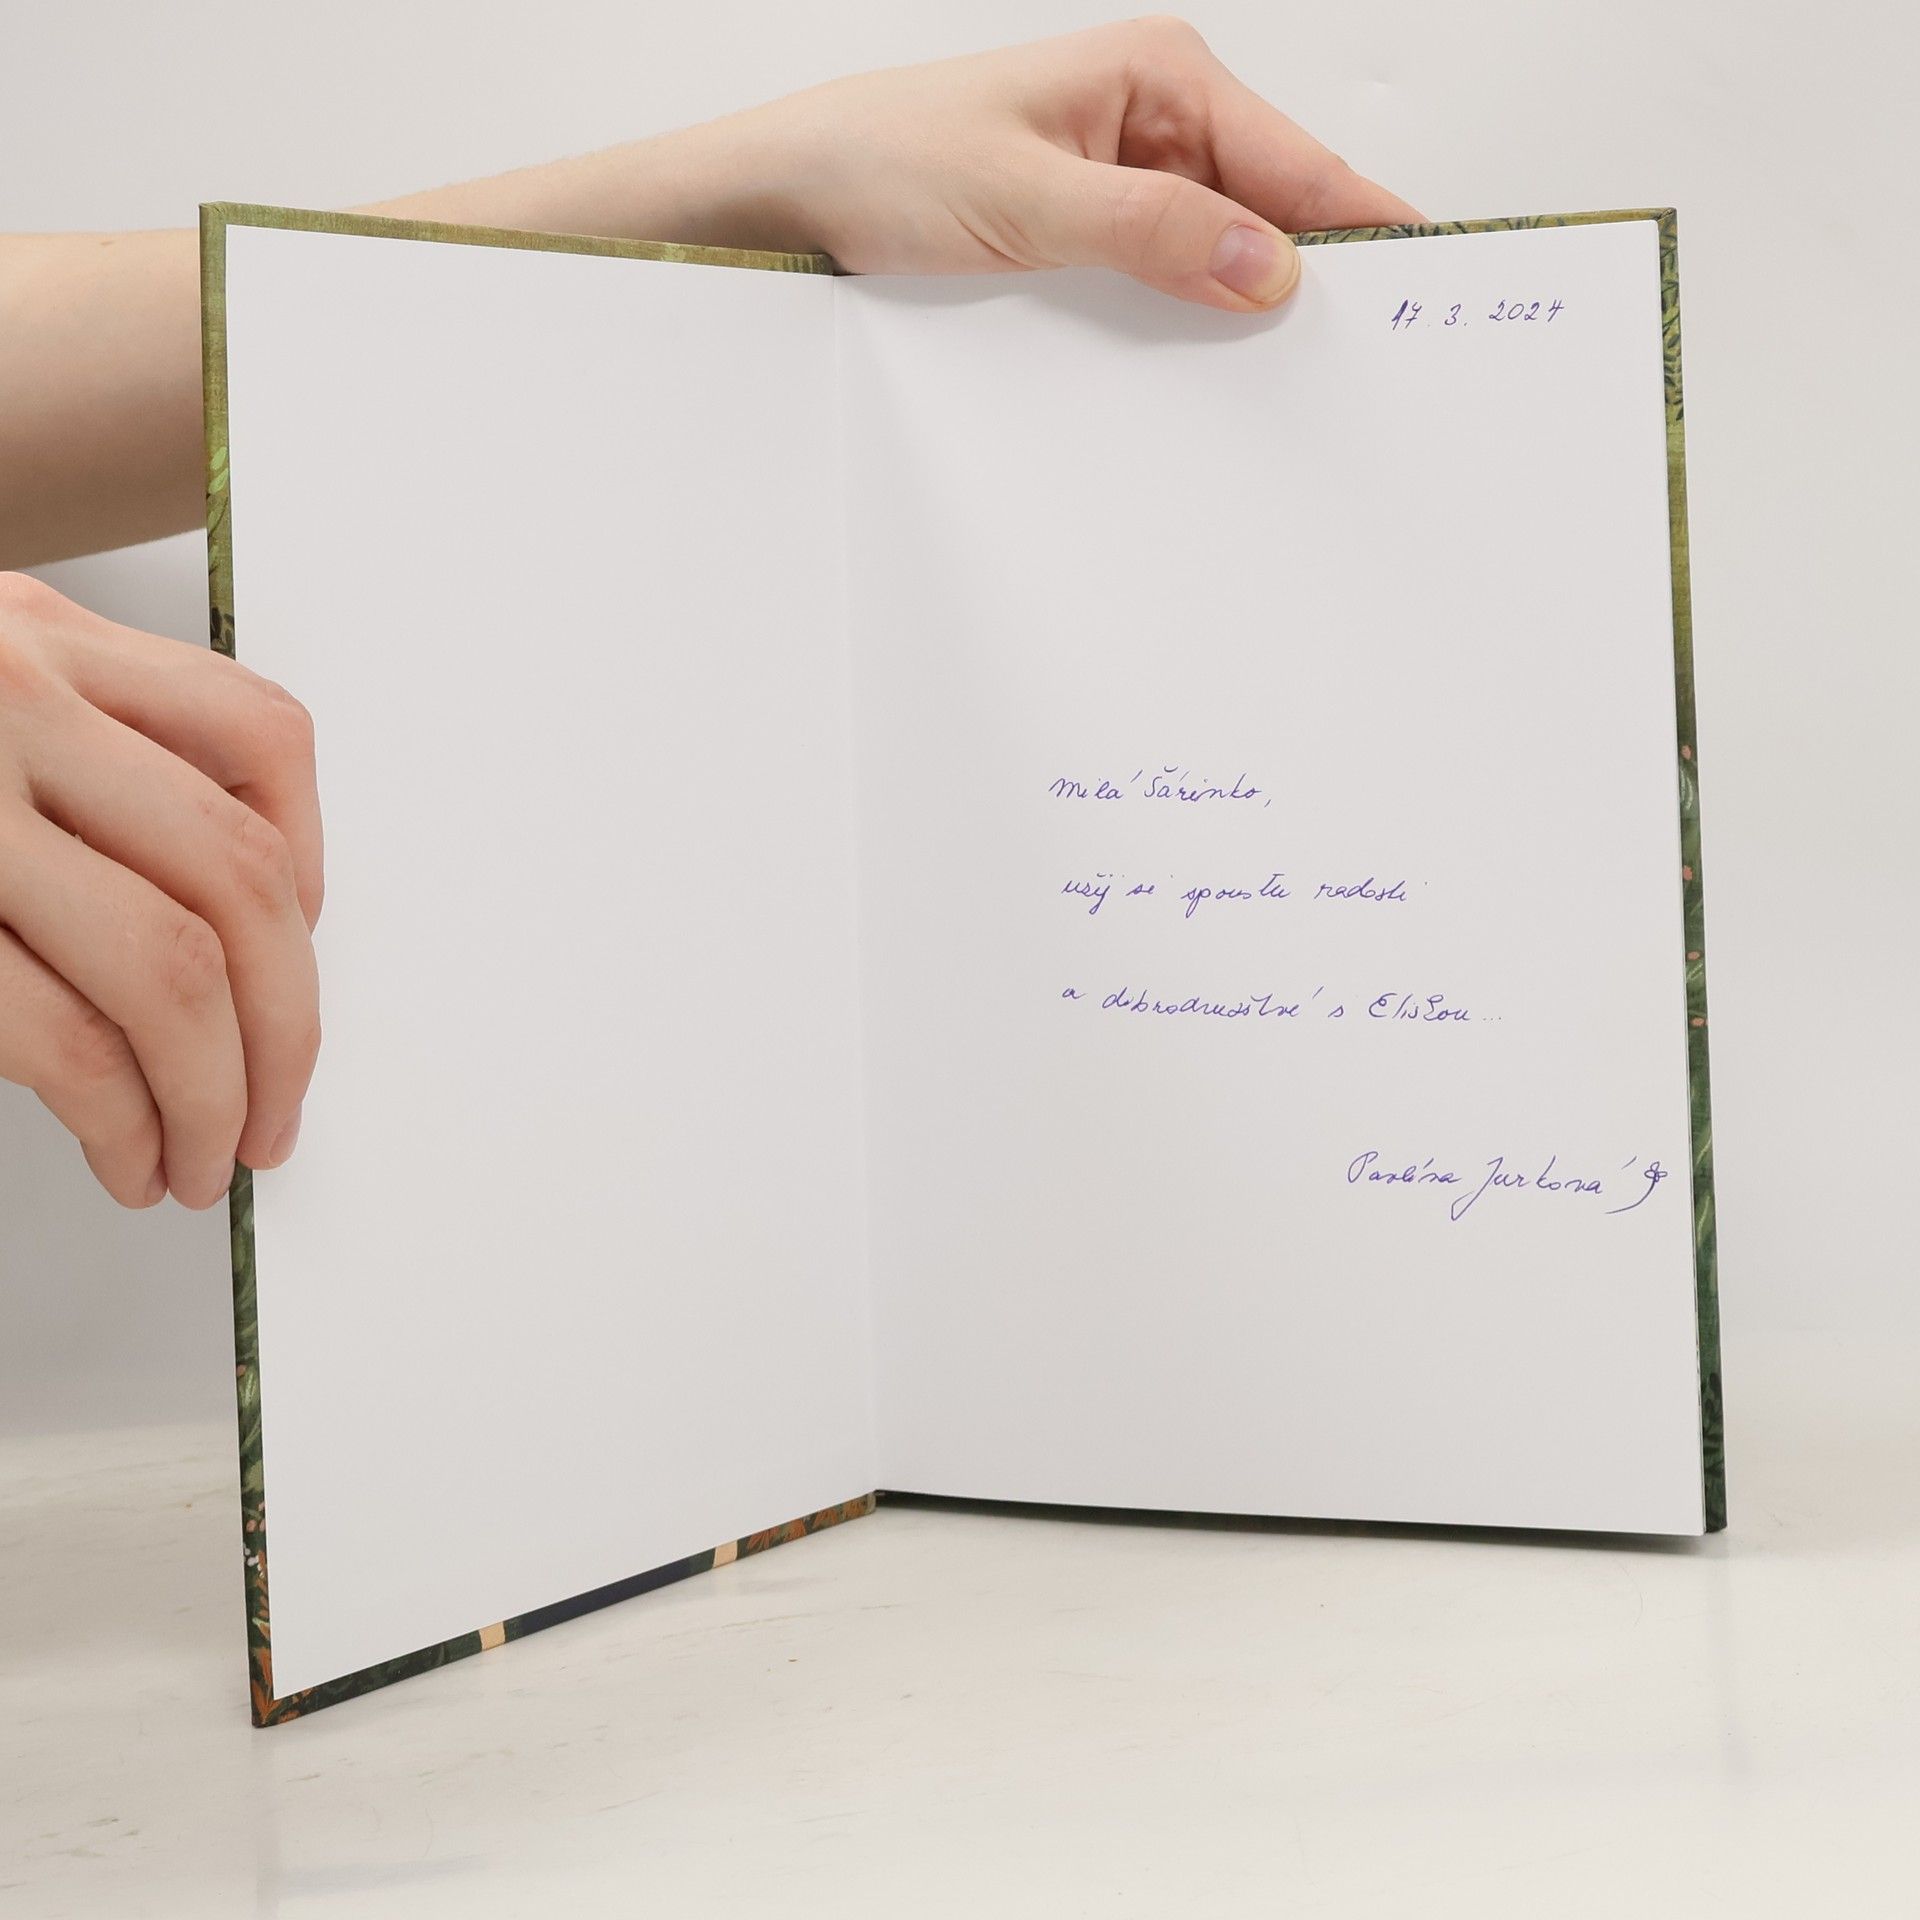 17. 3. 2024
Milá Šárinko,
užij si spoustu radosti
a dobrodružství s Eliškou...
Pavlína Jurková